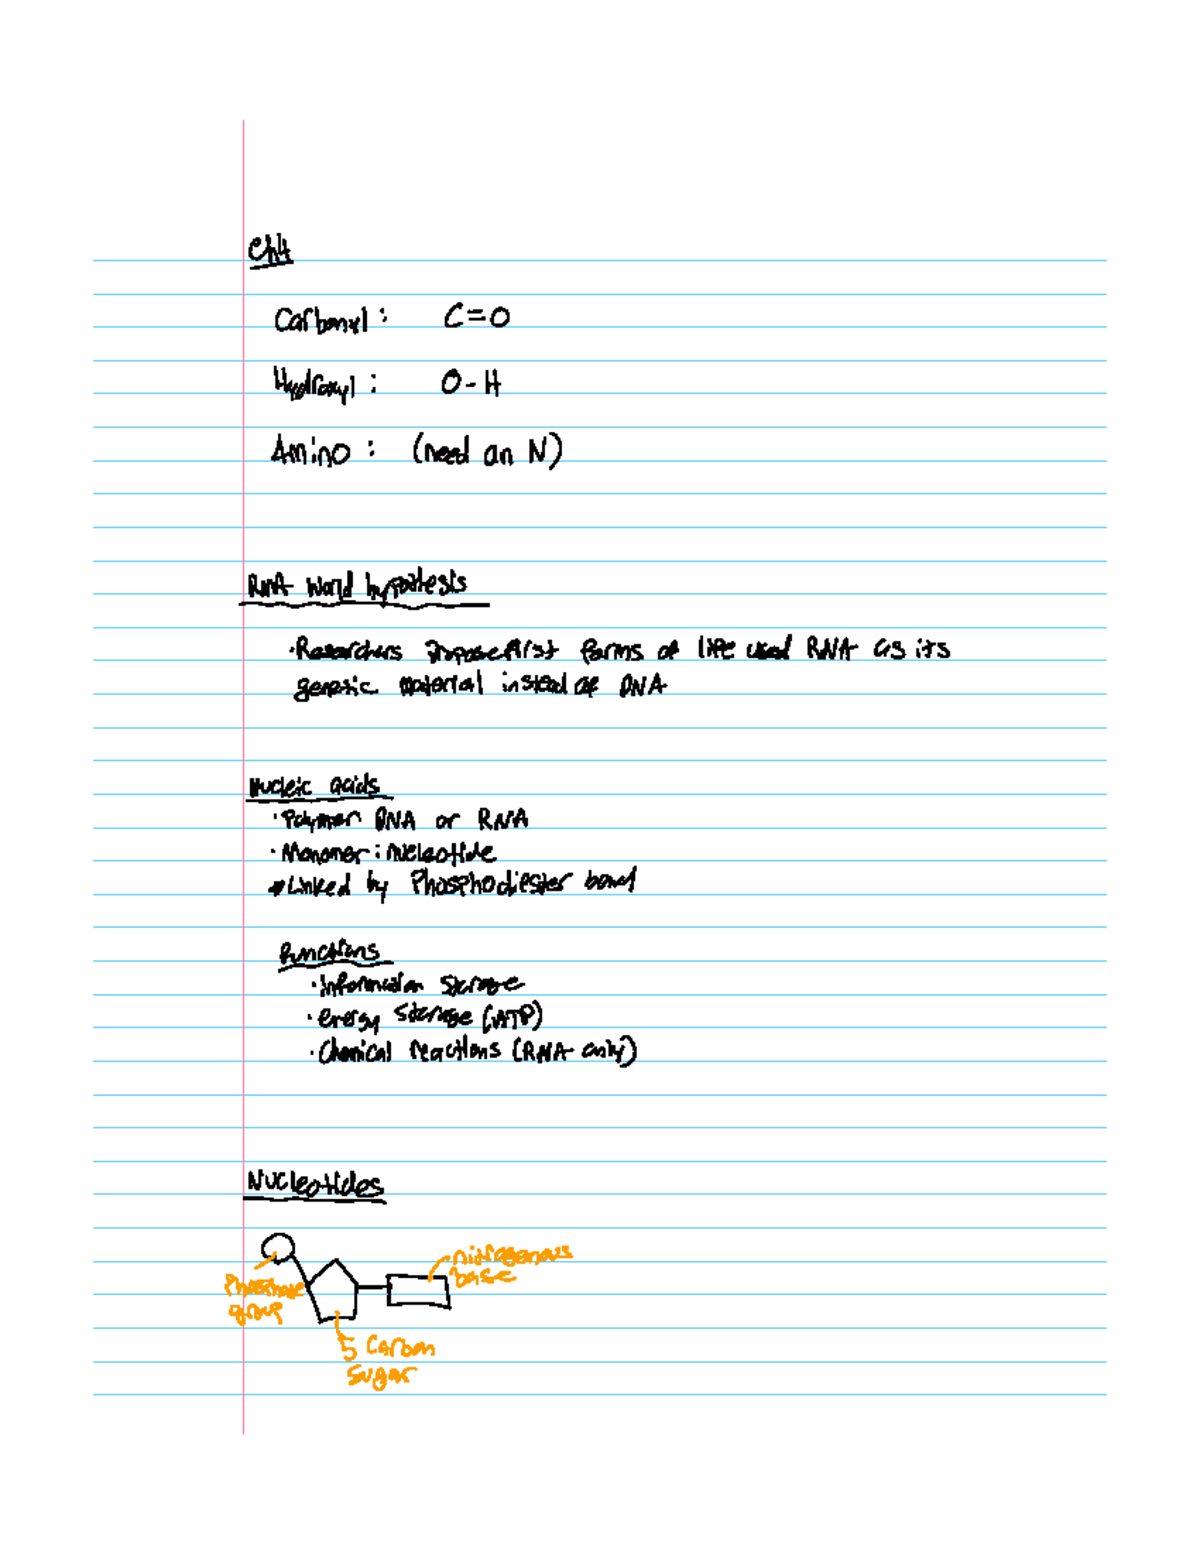 Ch4
Carbonyl: C=O
Hydroxyl: O-H
Amino: (need an N)
RNA World hypothesis
·Researchers propose first forms of life used RNA as its
genetic material instead of DNA
Nucleic acids
·Polymer DNA or RNA
·Monomer: nucleotide
*Linked by Phosphodiester bond
Functions
·Information storage
·energy storage (ATP)
·Chemical reactions (RNA only)
Nucleotides
nitrogenous
base
Phosphate
group
5 Carbon
Sugar